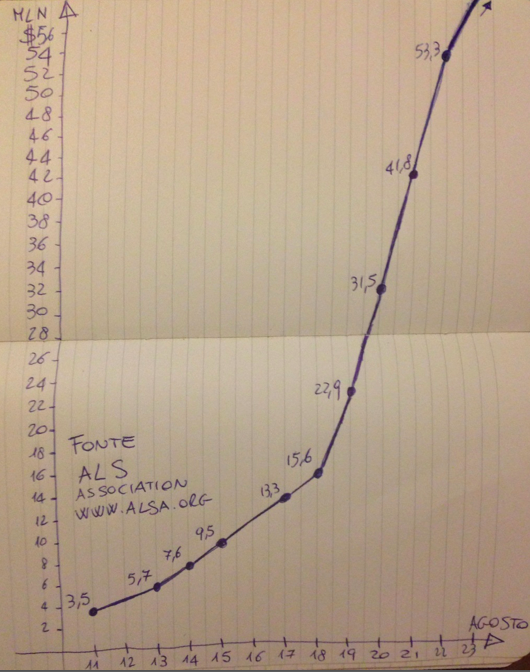 MLN
$56
54
52
50
48
46
44
42
40
38
36
34
32
30
28
26
24
22
20
18
16
14
12
10
8
6
4
2
53,3
41,8
31,5
22,9
15,6
13,3
9,5
7,6
5,7
3,5
FONTE
ALS
ASSOCIATION
WWW.ALSA.ORG
AGOSTO
11 12 13 14 15 16 17 18 19 20 21 22 23